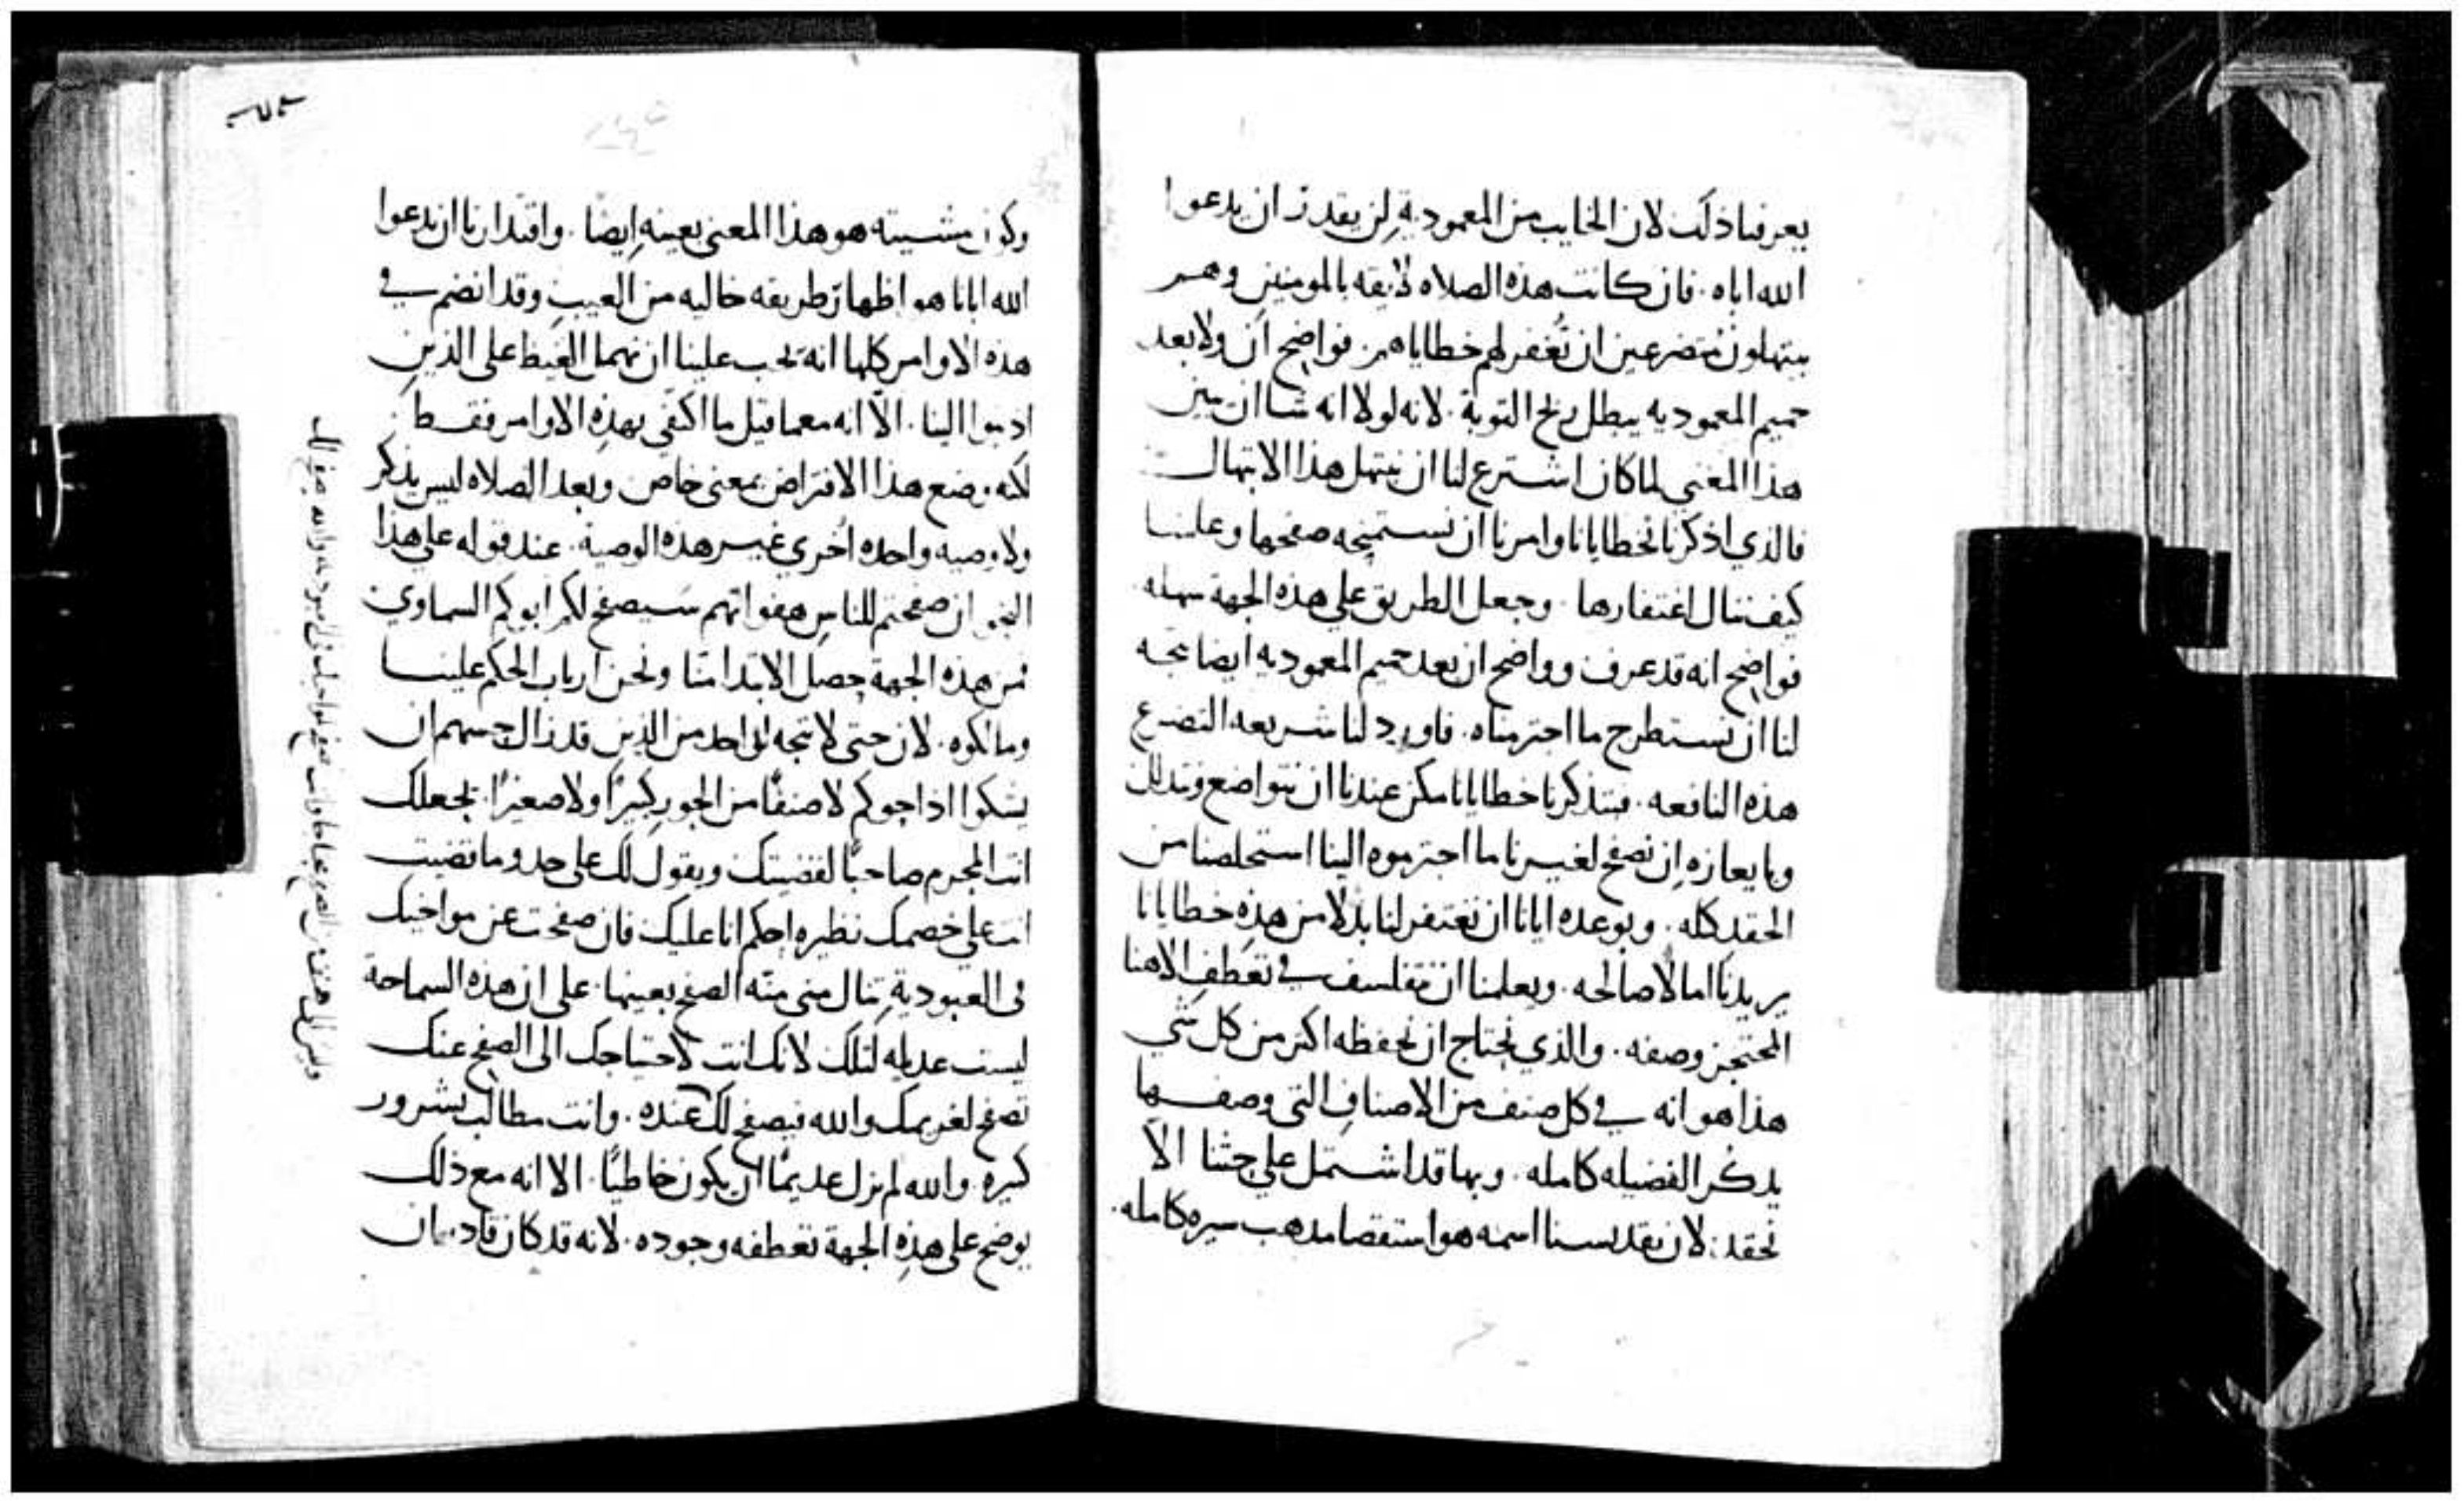 يعرفنا ذلك لان الخايب من المعمودية لن يقدر ان يدعوا
الله اباه. فان كانت هذه الصلاه لايقه بالمومنين وهم
يبتهلون متضرعين ان تُغفر لهم خطاياهم. فواضح ان ولا بعد
حميم المعموديه يبطل ربح التوبة. لانه لولا انه شا ان يبين
هذا المعني لما كان اشترع لنا ان نبتهل هذا الابتهال
فالذي اذكرنا بخطايانا وامرنا ان نستميحه صفحها وعلمنا
كيف ننال اغتفارها. وجعل الطريق علي هذه الجهة سهله
فواضح انه قد عرف وواضح ان بعد حميم المعموديه ايضا يتجه
لنا ان نستطرح ما اجترمناه. فاورد لنا شريعه التضرع
هذه النافعه. فبتذكرنا خطايانا مكن عندنا ان نتواضع ونتذلل
وبايعازه ان نصفح لغيرنا ما اجترموه الينا استخلصنا من
الحقد كله. وبوعده ايانا ان تغتفر لنا بدلا من هذه خطايانا
يريدنا امالا صالحه. ويعلمنا ان نتفلسف في تعطف الاهنا
المحتجز وصفه. والذي نحتاج ان نحفظه اكثر من كل شي
هذا هو انه في كل صنف من الاصناف التي وصفها
يذكر الفضيله كامله. وبها قد اشتمل علي حثنا الاّ
نحقد: لان تقديسنا اسمه هو استقصا مذهب سيره كامله.
وكون مشيته هو هذا المعني بعينه ايضًا. واقتدارنا ان ندعوا
الله ابانا هو اظهار طريقه خاليه من العيب وقد انضم في
هذه الاوامر كلها انه يجب علينا ان نهمل الغيظ علي الذين
اذنبوا الينا. الاّ انه مع ما قيل ما اكتفي بهذه الاوامر فقط
لكنه وضع هذا الافتراض بمعني خاص وبعد الصلاه ليس يذكر
ولا وصيه واحده اُخري غير هذه الوصية. عند قوله علي هذا
النحو ان صفحتم للناس هفواتهم سَيصفح لكم ابوكم السماوي
فمن هذه الجهة حصل الابتدا منّا ونحن ارباب الحكم علينا
ومالكوه. لان حتي لا يتجه لواحد من الذين قد زال حسهم ان
يشكوا اذا حوكم لا صنفًا من الجور كبيرًا ولا صغيرًا. يجعلك
انت المجرم صاحبًا لقضيتك ويقول لك علي حدو ما تقضيت
انت علي خصمك نظيره احكم انا عليك فان صفحت عن مواخيك
في العبودية تنال مني منّه الصفح بعينها. علي ان هذه السماحة
ليست عديله لتلك لانك انت لاحتياجك الي الصفح عنك
تصفح لغريمك والله فيصفح لك عنده. وانت مطالب بشرور
كثيره. والله لم يزل عديمًا ان يكون خاطيًا. الا انه مع ذلك
يوضح علي هذه الجهة تعطفه وجوده. لانه قد كان قادر بان